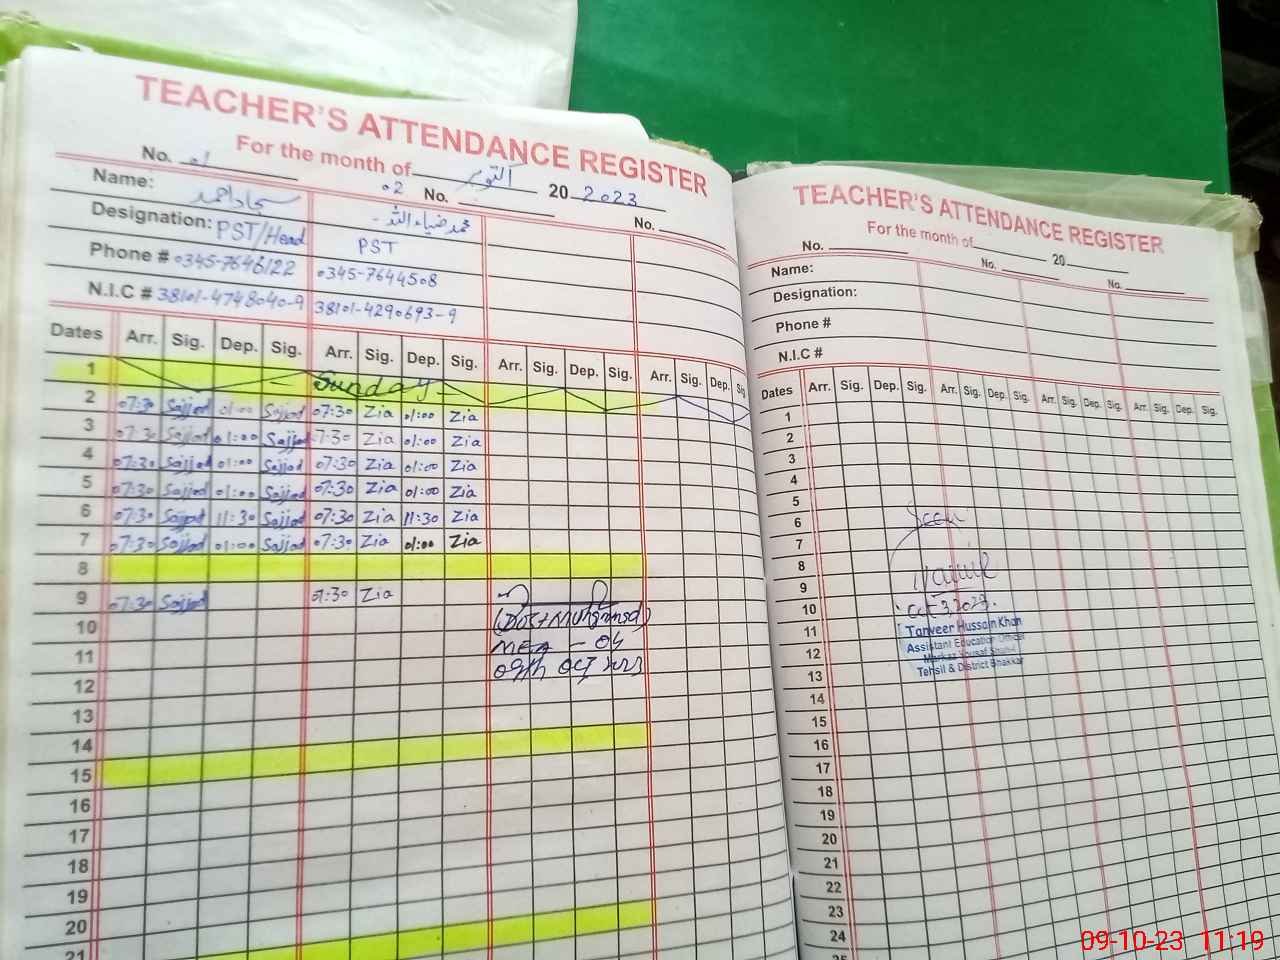 TEACHER'S ATTENDANCE REGISTER
For the month of اکتوبر 20 2023
No. 01 02 No. No.
Name: سجاد احمد محمد ضیاء اللہ
Designation: PST/Head PST
Phone # 0345-7646122 0345-7644508
N.I.C # 38101-4748040-9 38101-4290693-9
Dates Arr. Sig. Dep. Sig. Arr. Sig. Dep. Sig. Arr. Sig. Dep. Sig. Arr. Sig. Dep.
1 — Sunday —
2 07:30 Sajjad 01:00 Sajjad 07:30 Zia 01:00 Zia
3 07:30 Sajjad 01:00 Sajjad 07:30 Zia 01:00 Zia
4 07:30 Sajjad 01:00 Sajjad 07:30 Zia 01:00 Zia
5 07:30 Sajjad 01:00 Sajjad 07:30 Zia 01:00 Zia
6 07:30 Sajjad 11:30 Sajjad 07:30 Zia 11:30 Zia
7 07:30 Sajjad 01:00 Sajjad 07:30 Zia 01:00 Zia
8
9 07:30 Sajjad 07:30 Zia
10
MEA - 04
11
09th Oct 2023
12
13
14
15
16
17
18
19
20
21
TEACHER'S ATTENDANCE REGISTER
For the month of 20
No. No. No.
Name:
Designation:
Phone #
N.I.C #
Dates Arr. Sig. Dep. Sig. Arr. Sig. Dep. Sig. Arr. Sig. Dep. Sig. Arr. Sig. Dep. Sig.
1
2
3
4
5
6 Seen
7
8
9
10 Oct 3, 2023.
11 Tanveer Hussain Khan
12 Assistant Education Officer
Markaz Yousaf Shah
13 Tehsil & District Bhakkar
14
15
16
17
18
19
20
21
22
23
24
25
09-10-23 11:19